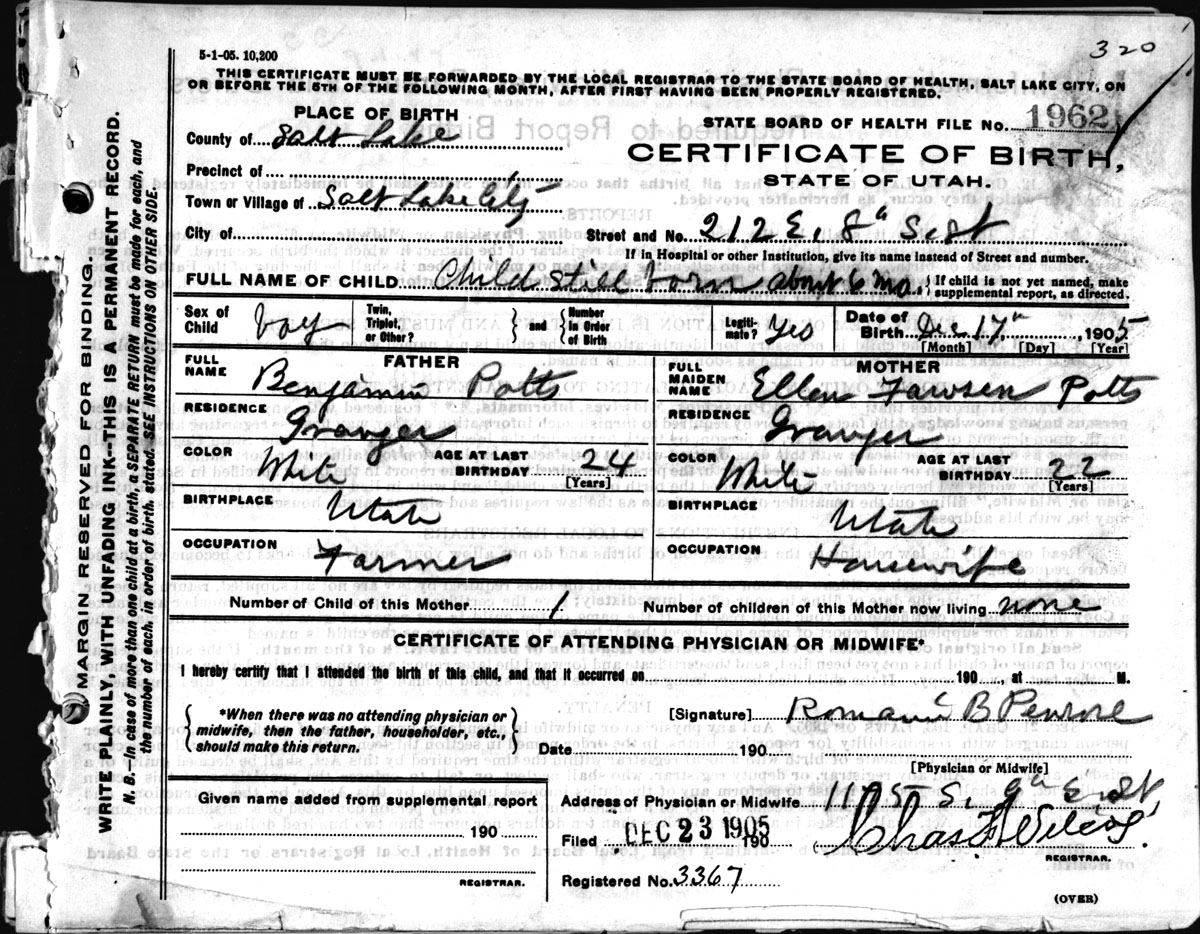 320
5-1-05. 10,200
THIS CERTIFICATE MUST BE FORWARDED BY THE LOCAL REGISTRAR TO THE STATE BOARD OF HEALTH, SALT LAKE CITY, ON
OR BEFORE THE 5TH OF THE FOLLOWING MONTH, AFTER FIRST HAVING BEEN PROPERLY REGISTERED.
PLACE OF BIRTH
County of Salt Lake
Precinct of
Town or Village of Salt Lake City
City of
STATE BOARD OF HEALTH FILE No. 1962
CERTIFICATE OF BIRTH,
STATE OF UTAH.
Street and No. 212 E. 8" S. st
If in Hospital or other Institution, give its name instead of Street and number.
FULL NAME OF CHILD Child Still born about 6 mo. } If child is not yet named, make
supplemental report, as directed.
Sex of Child boy
Twin, Triplet, or Other? } and { Number in Order of Birth
Legiti-mate? Yes
Date of Birth Dec. 17", 1905
[Month] [Day] [Year]
FATHER
FULL NAME Benjamin Potts
RESIDENCE Granger
COLOR White AGE AT LAST BIRTHDAY 24
[Years]
BIRTHPLACE Utah
OCCUPATION Farmer
MOTHER
FULL MAIDEN NAME Ellen Potts
RESIDENCE Granger
COLOR White AGE AT LAST BIRTHDAY 22
[Years]
BIRTHPLACE Utah
OCCUPATION Housewife
Number of Child of this Mother 1 Number of children of this Mother now living none
CERTIFICATE OF ATTENDING PHYSICIAN OR MIDWIFE*
I hereby certify that I attended the birth of this child, and that it occurred on 190 , at M.
{ *When there was no attending physician or
midwife, then the father, householder, etc.,
should make this return. }
[Signature] Romania B Penrose
Date 190
[Physician or Midwife]
Given name added from supplemental report
190
REGISTRAR.
Address of Physician or Midwife 1175 S. 9" E. st,
Filed DEC 23 1905 190 ( Chas F Wilcox
REGISTRAR.
Registered No. 3367
(OVER)
MARGIN RESERVED FOR BINDING.
WRITE PLAINLY, WITH UNFADING INK—THIS IS A PERMANENT RECORD.
N. B.—In case of more than one child at a birth, a SEPARATE RETURN must be made for each, and
the number of each, in order of birth, stated. SEE INSTRUCTIONS ON OTHER SIDE.